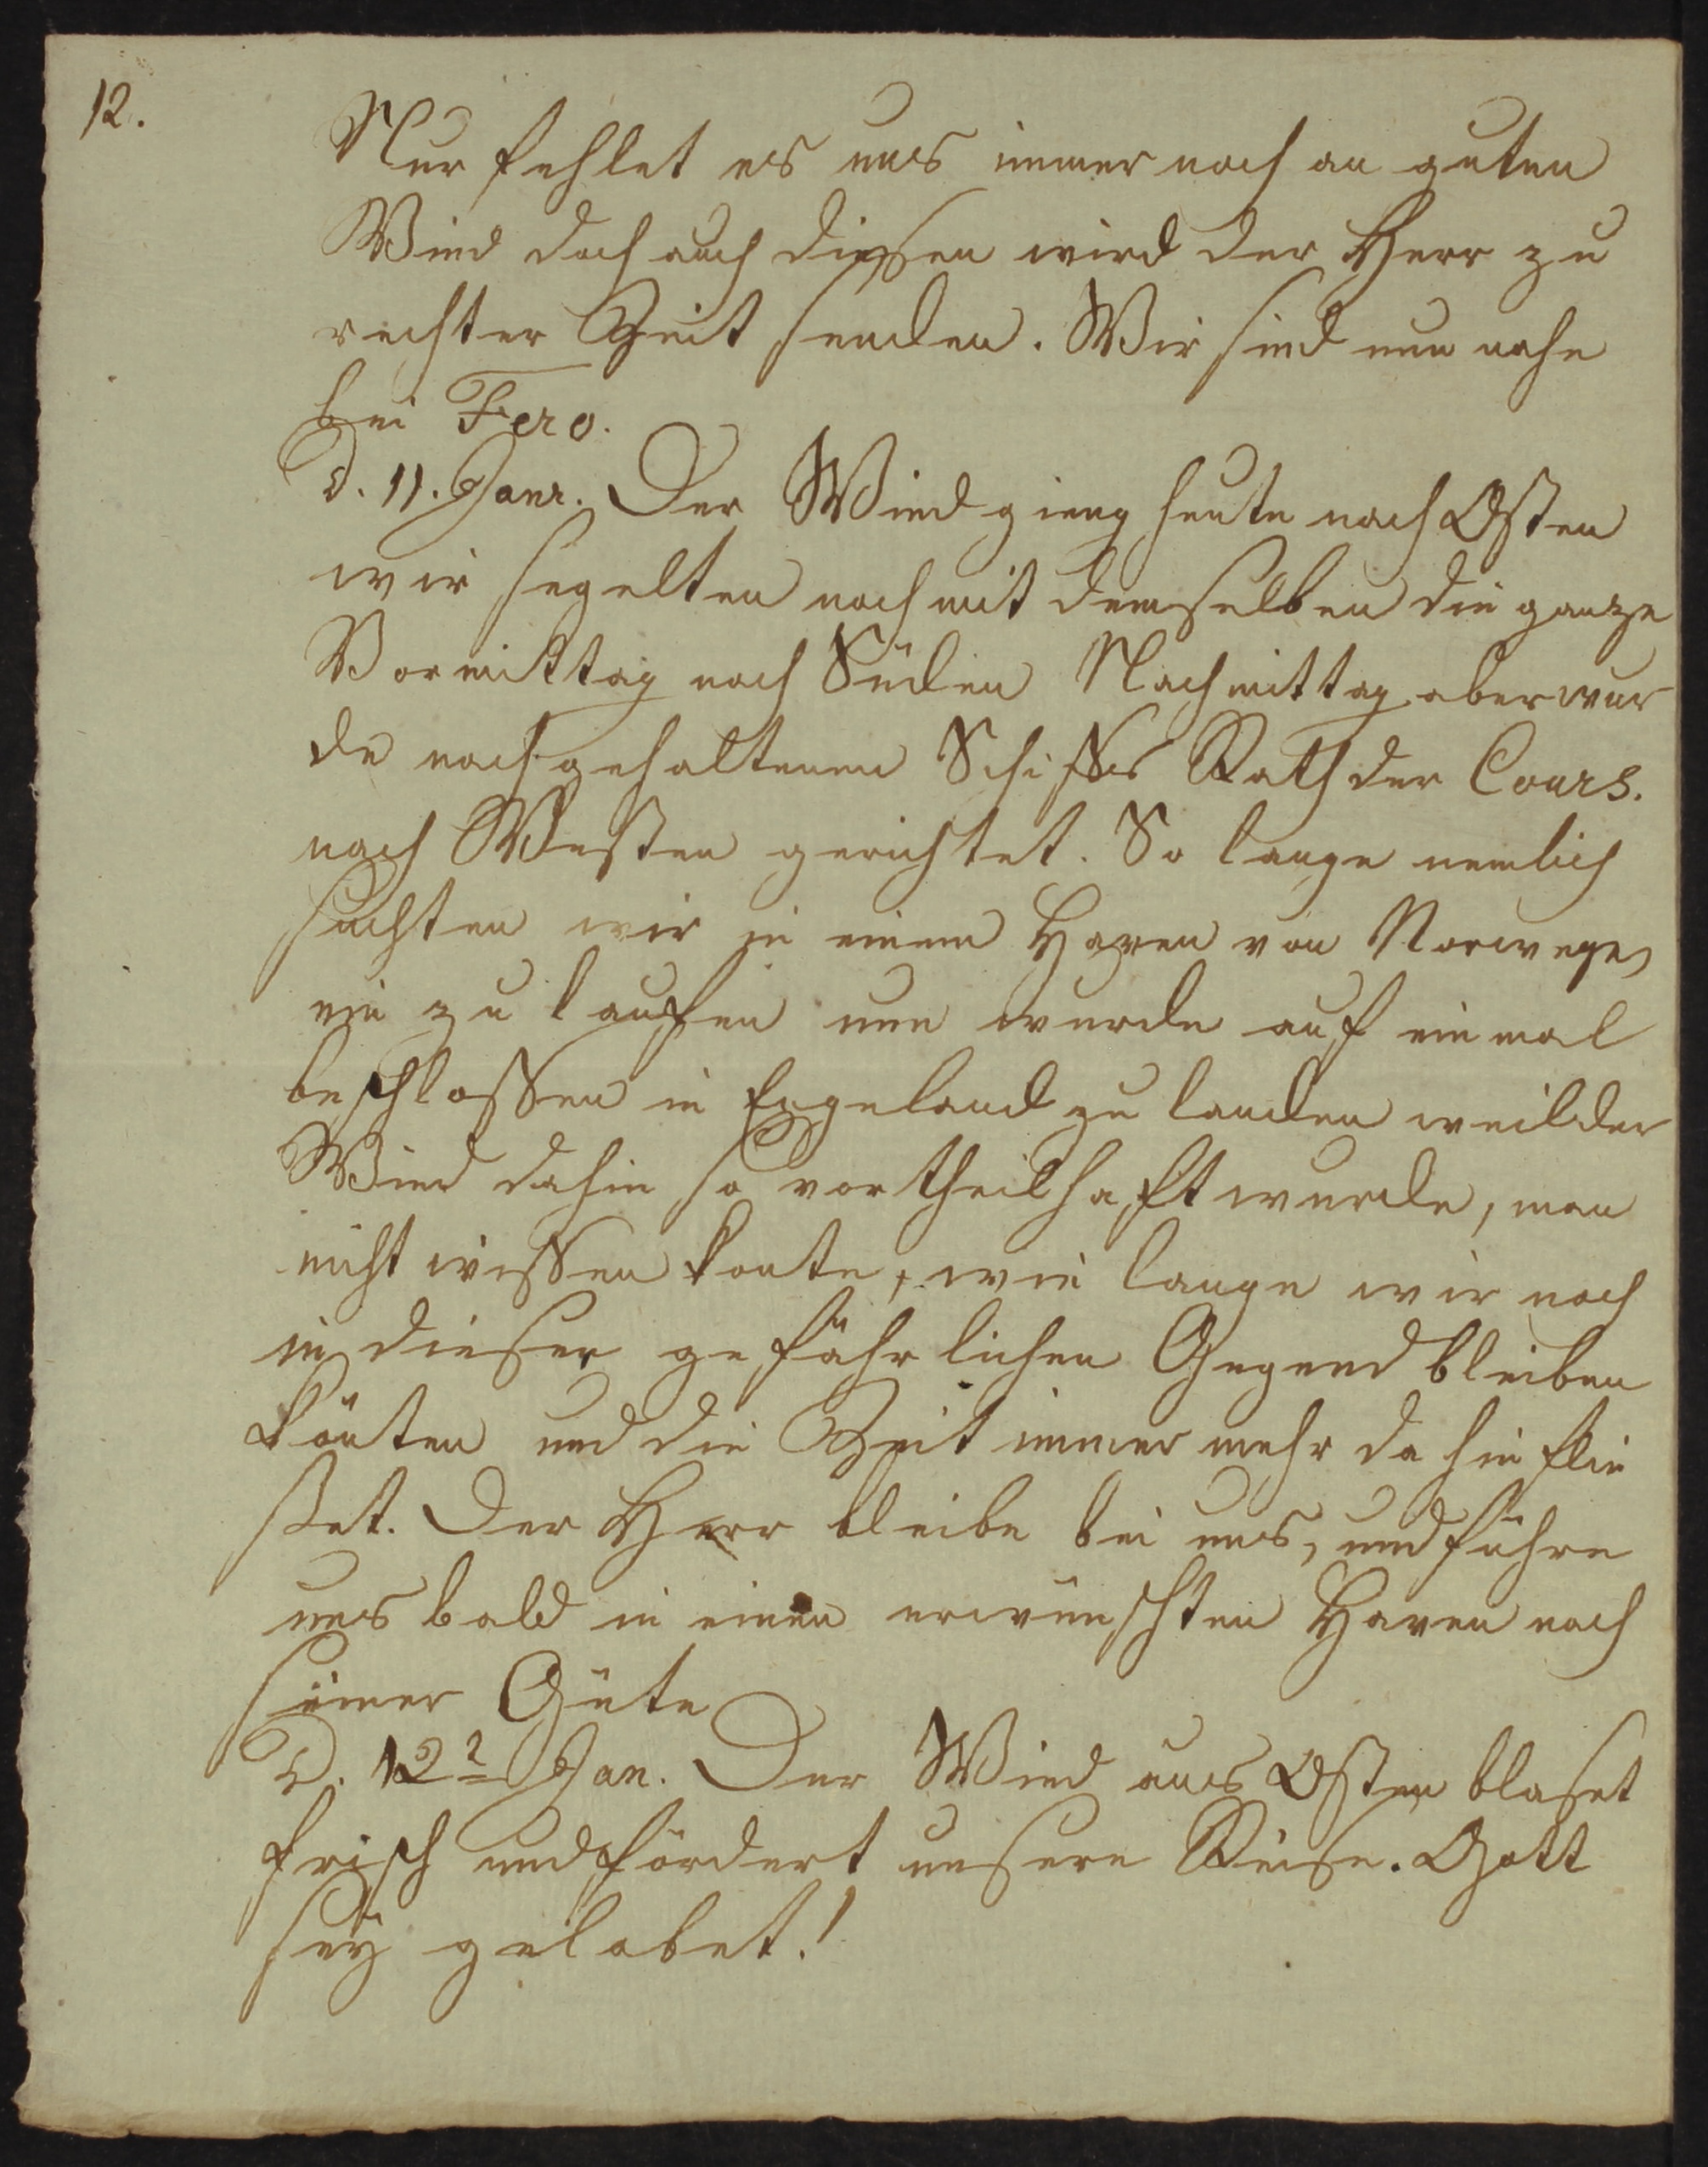 12.
Nur fehlet es uns immer noch an guten
Wind doch auch diesen wird der Herr zu
rechter Zeit senden. Wir sind nun nahe
bei Fero.
D. 11. Janr. Der Wind gieng heute nach Osten
wir segelten noch mit demselben die ganze
Vormittag nach Süden Nachmittag aber wur
de nach gehaltenem Schiffs Rath der Cours.
nach Westen gerichtet. So lange nemlich
suchten wir in einem Haven von Norwegen
ein zu laufen nun wurde auf einmal
beschlossen in Engeland zu landen weil der
Wind dahin so vortheilhaft wurde, man
nicht wissen konte, wie lange wir noch
in dieser gefährlichen Gegend bleiben
könten und die Zeit immer mehr dahin flie
ßet. Der Herr bleibe bei uns, und führe
uns bald in einen erwünschten Haven nach
seiner Güte
D. 12 Jan. Der Wind aus Osten blaset
frisch und fördert unsere Reise. Gott
seÿ gelobet!